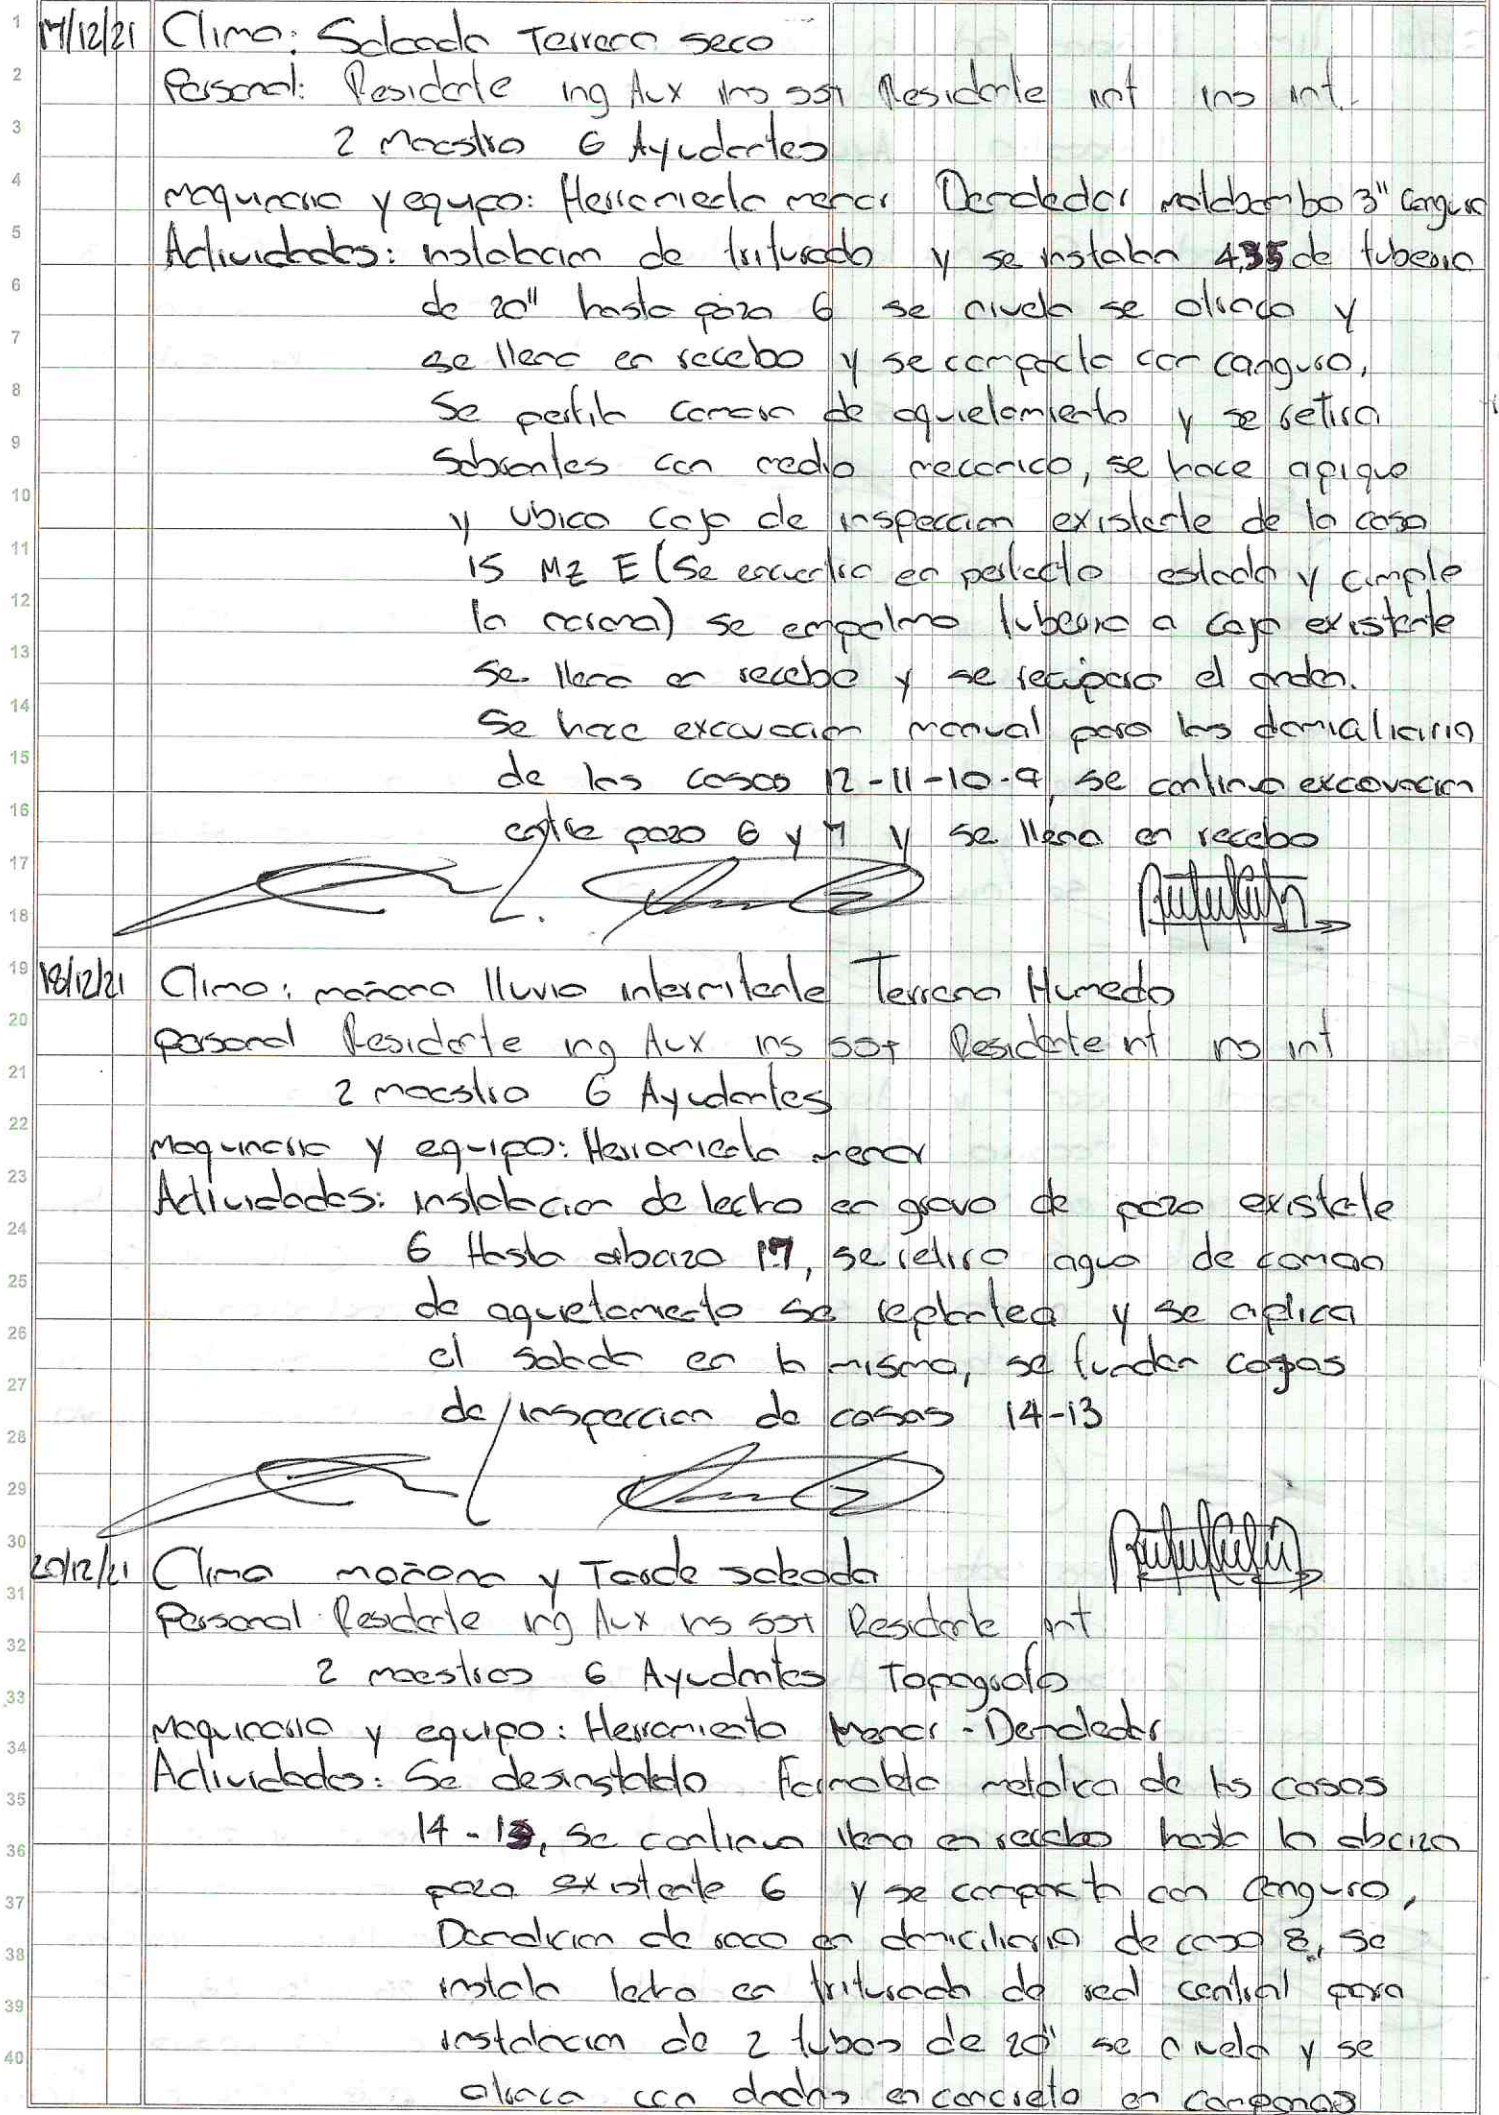 17/12/21 Clima: Soleado Terreno seco
Personal: Residente ing Aux ins sst Residente int ins int.
2 maestro 6 Ayudantes
maquinaria y equipo: Herramienta menor Demoledor motobombo 3" Canguro
Actividades: instalacion de triturado y se instalan 4,35 de tuberia
de 20" hasta pozo 6 se nivela se atraca y
se llena en recebo y se compacta con canguro,
Se perfila camara de aquietamiento y se retira
sobrantes con medio mecanico, se hace apique
y ubica caja de inspeccion existente de la casa
15 Mz E (Se encuentra en perfecto estado y cumple
la norma) se empalma tuberia a caja existente
se llena en recebo y se recupera el anden.
Se hace excavacion manual para las domiciliaria
de las casas 12-11-10-9, se continua excavacion
entre pozo 6 y 7 y se llena en recebo
18/12/21 Clima: mañana lluvia intermitente Terreno Humedo
personal Residente ing Aux ins sst Residente int ins int
2 maestro 6 Ayudantes
Maquinaria y equipo: Herramienta menor
Actividades: instalacion de lecho en grava de pozo existente
6 Hasta abaza 17, se retira agua de camara
de aquietamiento se replantea y se aplica
el solado en la misma, se funden cajas
de inspeccion de casas 14-13
20/12/21 Clima mañana y Tarde soleada
Personal Residente ing Aux ins sst Residente int
2 maestros 6 Ayudantes Topografo
Maquinaria y equipo: Herramienta Menor - Demoledor
Actividades: Se desinstalado Formaleta metalica de las casas
14-13, se continua lleno en recebo hasta la abciza
pozo existente 6 y se compacta con canguro,
Demolicion de roca en domiciliaria de casa 8, se
instala lecho en triturado de red central para
instalacion de 2 tubos de 20" se nivela y se
atraca con dados en concreto en campanas